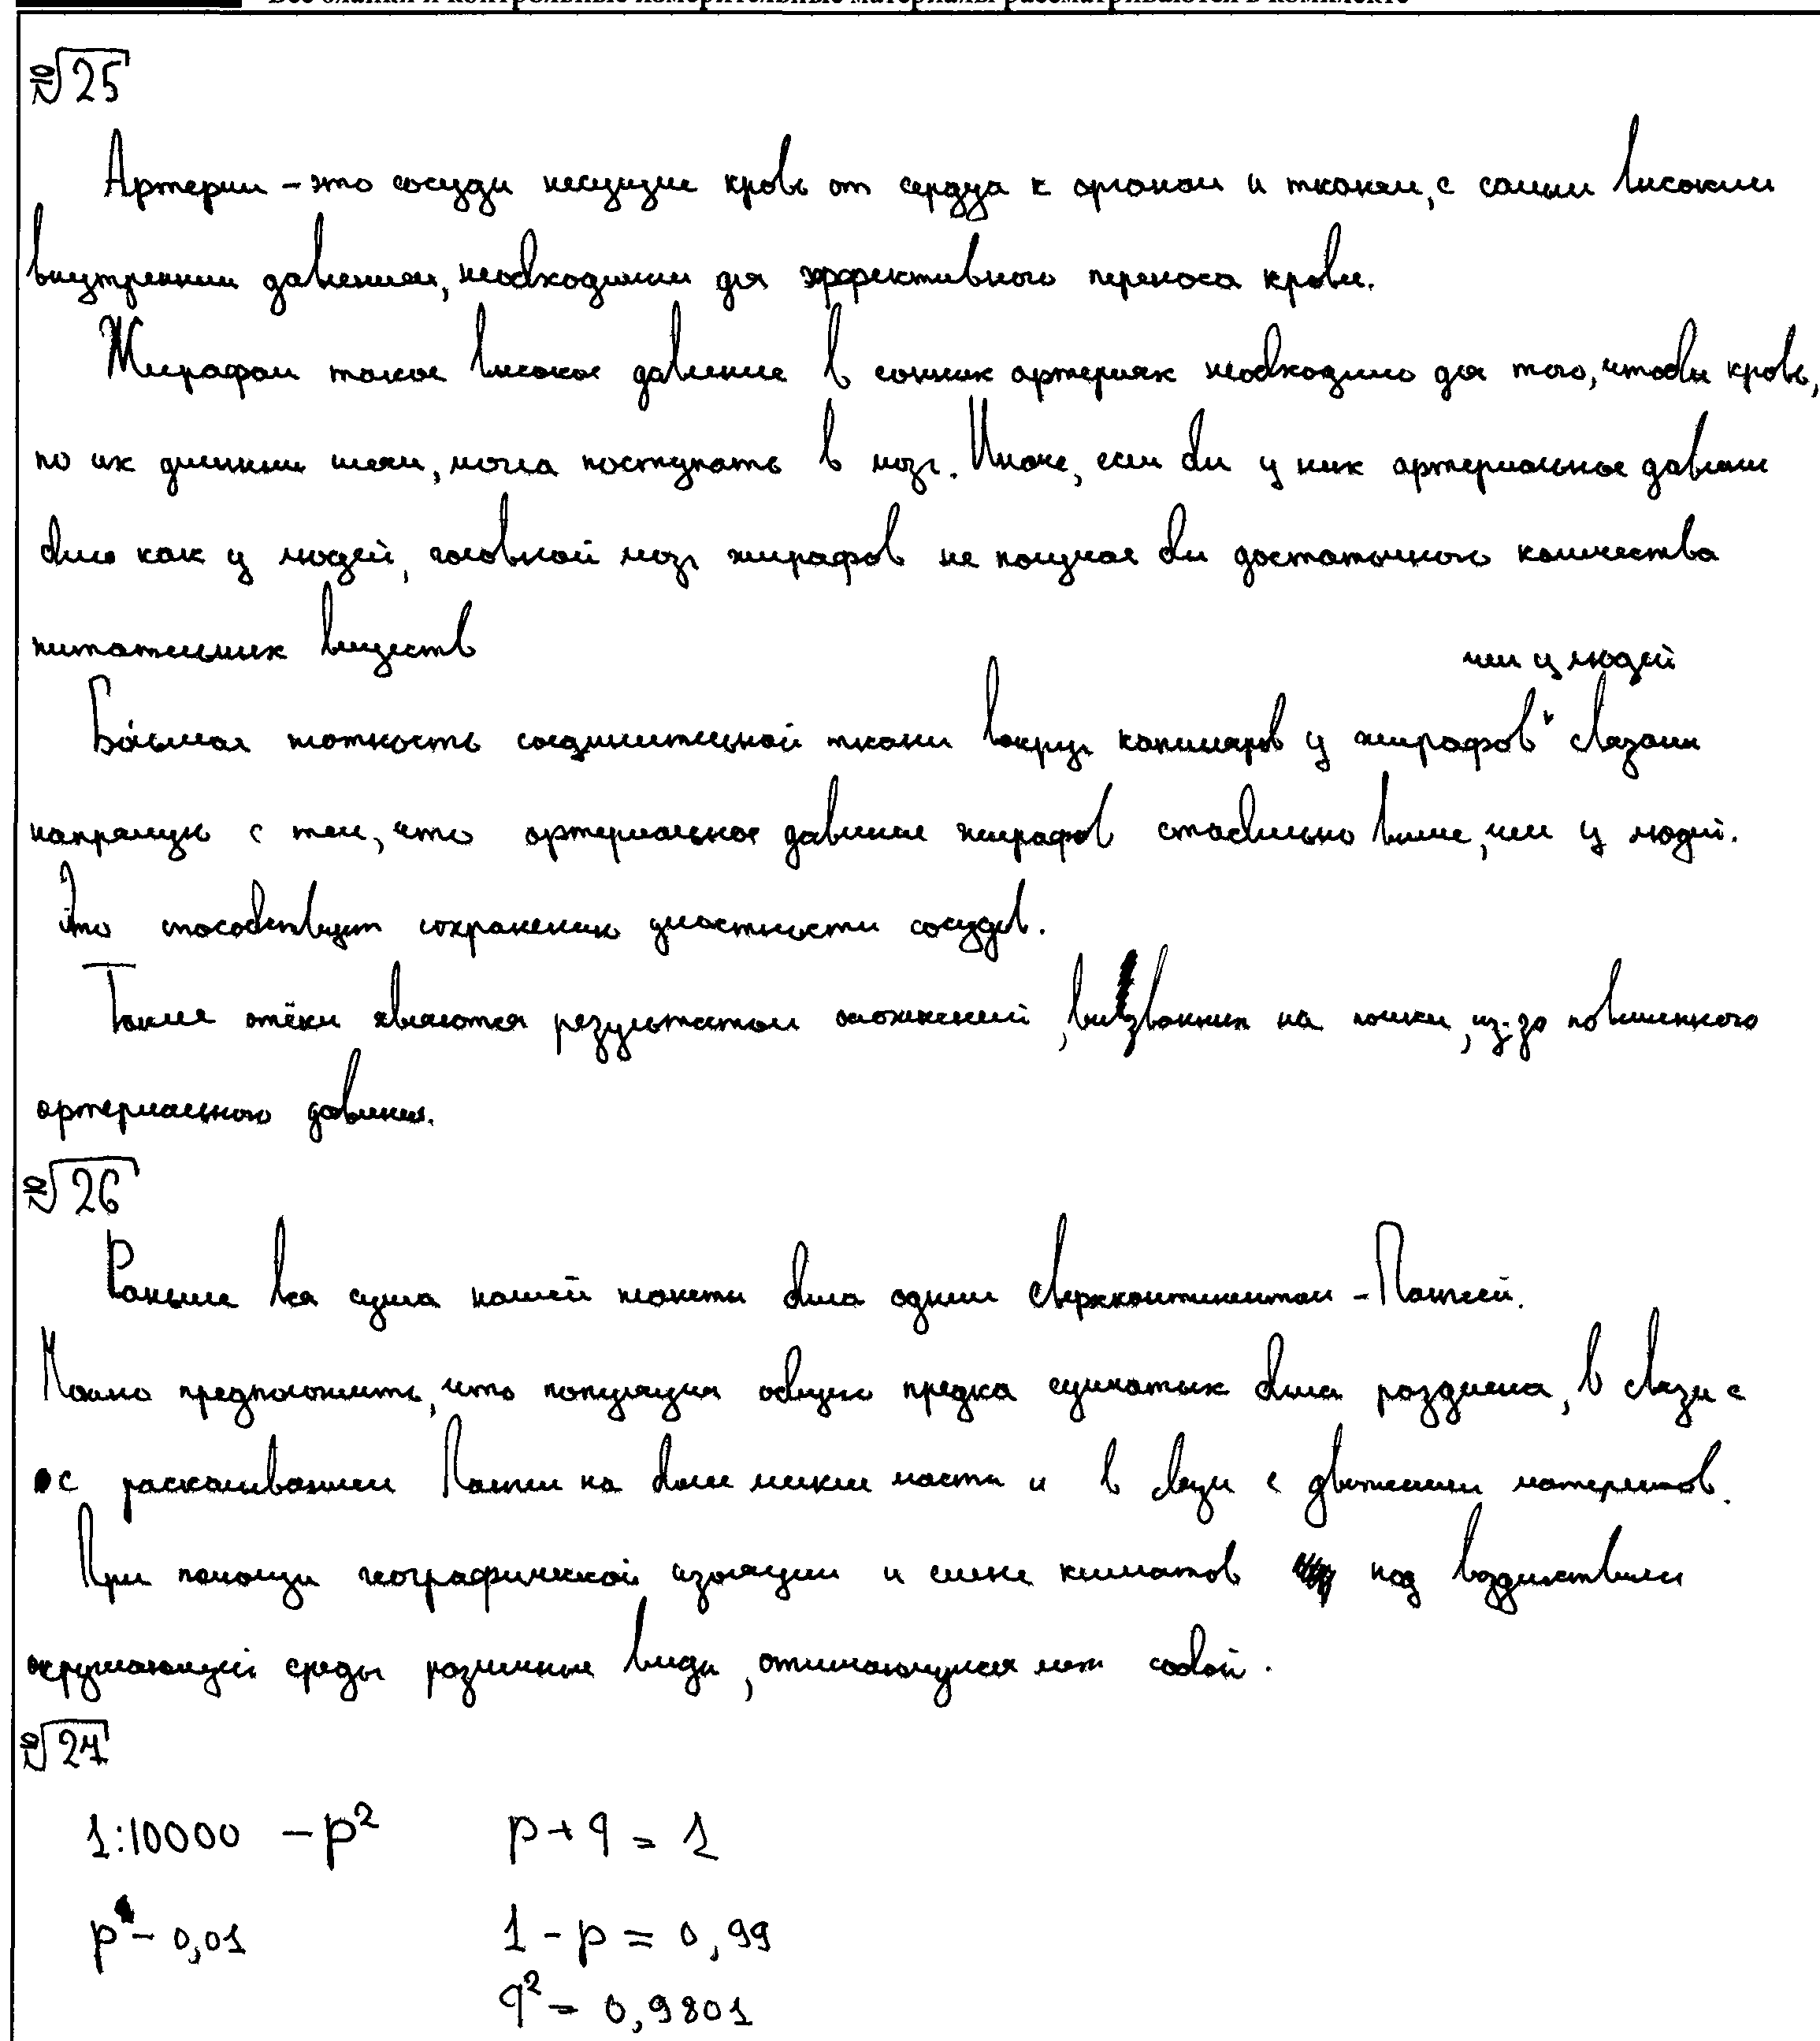 Все бланки и контрольные измерительные материалы рассматриваются в комплекте
№25
Артерии – это сосуды несущие кровь от сердца к органам и тканям, с самым высоким
внутренним давлением, необходимым для эффективного переноса крови.
Жирафам такое высокое давление в сонных артериях необходимо для того, чтобы кровь,
по их длинным шеям, могла поступать в мозг. Иначе, если бы у них артериальное давление
было как у людей, головной мозг жирафов не получал бы достаточного количества
питательных веществ
чем у людей
Большая плотность соединительной ткани вокруг капилляров у жирафов v связана
напрямую с тем, что артериальное давление жирафов стабильно выше, чем у людей.
Это способствует сохранению целостности сосудов.
Такие отёки являются результатом осложнений, вызванных на почки, из-за повышенного
артериального давления.
№26
Раньше вся суша нашей планеты была одним сверхконтинентом – Пангеей.
Можно предположить, что популяция общего предка сумчатых была разделена, в связи с
с раскалыванием Пангеи на более мелкие части и в связи с движением материков.
При помощи географической изоляции и смене климатов под воздействием
окружающей среды различные виды, отличающиеся меж собой.
№27
1:10000 – p² p + q = 1
p – 0,01 1 – p = 0,99
q² = 0,9801